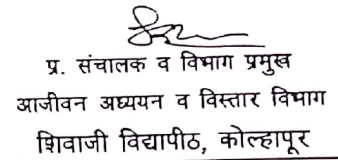 प्र. संचालक व विभाग प्रमुख
आजीवन अध्ययन व विस्तार विभाग
शिवाजी विद्यापीठ, कोल्हापूर